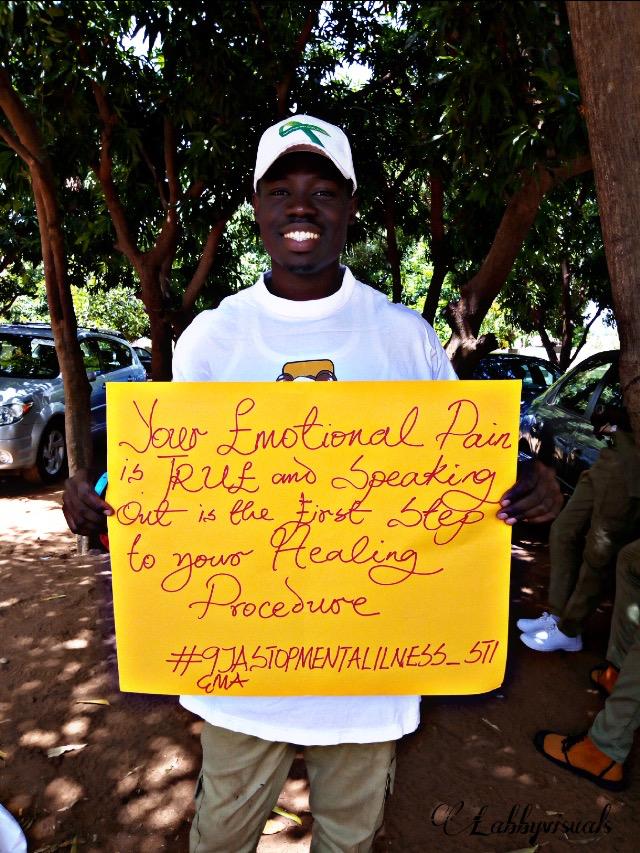 Your Emotional Pain
is TRUE and Speaking
Out is the First Step
to your Healing
Procedure
#9JASTOPMENTALILNESS_STI
GMA
Labbyvisuals